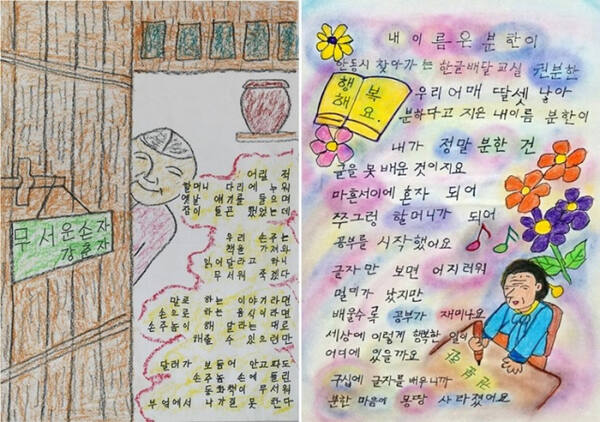 무서운손자
강춘자
어릴 적
할머니 다리에 누워
옛날 얘기를 들으며
잠이 들곤 했었는데
우리 손주는
책을 가져와
읽어달라고 하니
무서워 죽겠다
말로 하는 이야기라면
손으로 하는 음식이라면
손주놈이 해달라는 대로
해줄 수 있으련만
달려가 보듬어 안고파도
손주놈 손에 들린
동화책이 무서워
부엌에서 나가질 못 한다
내 이름은 분한이
안동시 찾아가는 한글배달교실 권분한
행복
해요.
우리 어매 딸셋 낳아
분하다고 지은 내이름 분한이
내가 정말 분한 건
글을 못 배운 것이지요
마흔서이에 혼자 되어
쭈그렁 할머니가 되어
공부를 시작했어요
글자만 보면 어지러워
멀미가 났지만
배울수록 공부가 재미나요
세상에 이렇게 행복한 일이
어디에 있을까요
구십에 글자를 배우니까
분한 마음에 몽땅 사라졌어요